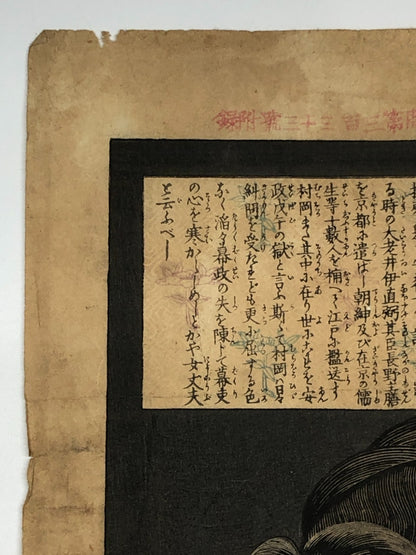 第三百三十三號附録
る時の大老井伊直弼其臣長野主膳
を京都に遣はし朝紳及び在京の儒
生等十数人を捕へて江戸に檻送す
村岡また其中に在り世に之を安
政戊午の獄と言ふ斯くて村岡は日々
糾問を受たれども更に屈する色
なく滔々幕政の失を陳じ幕吏
の心を寒からしめしとかや女丈夫
と云ふべし